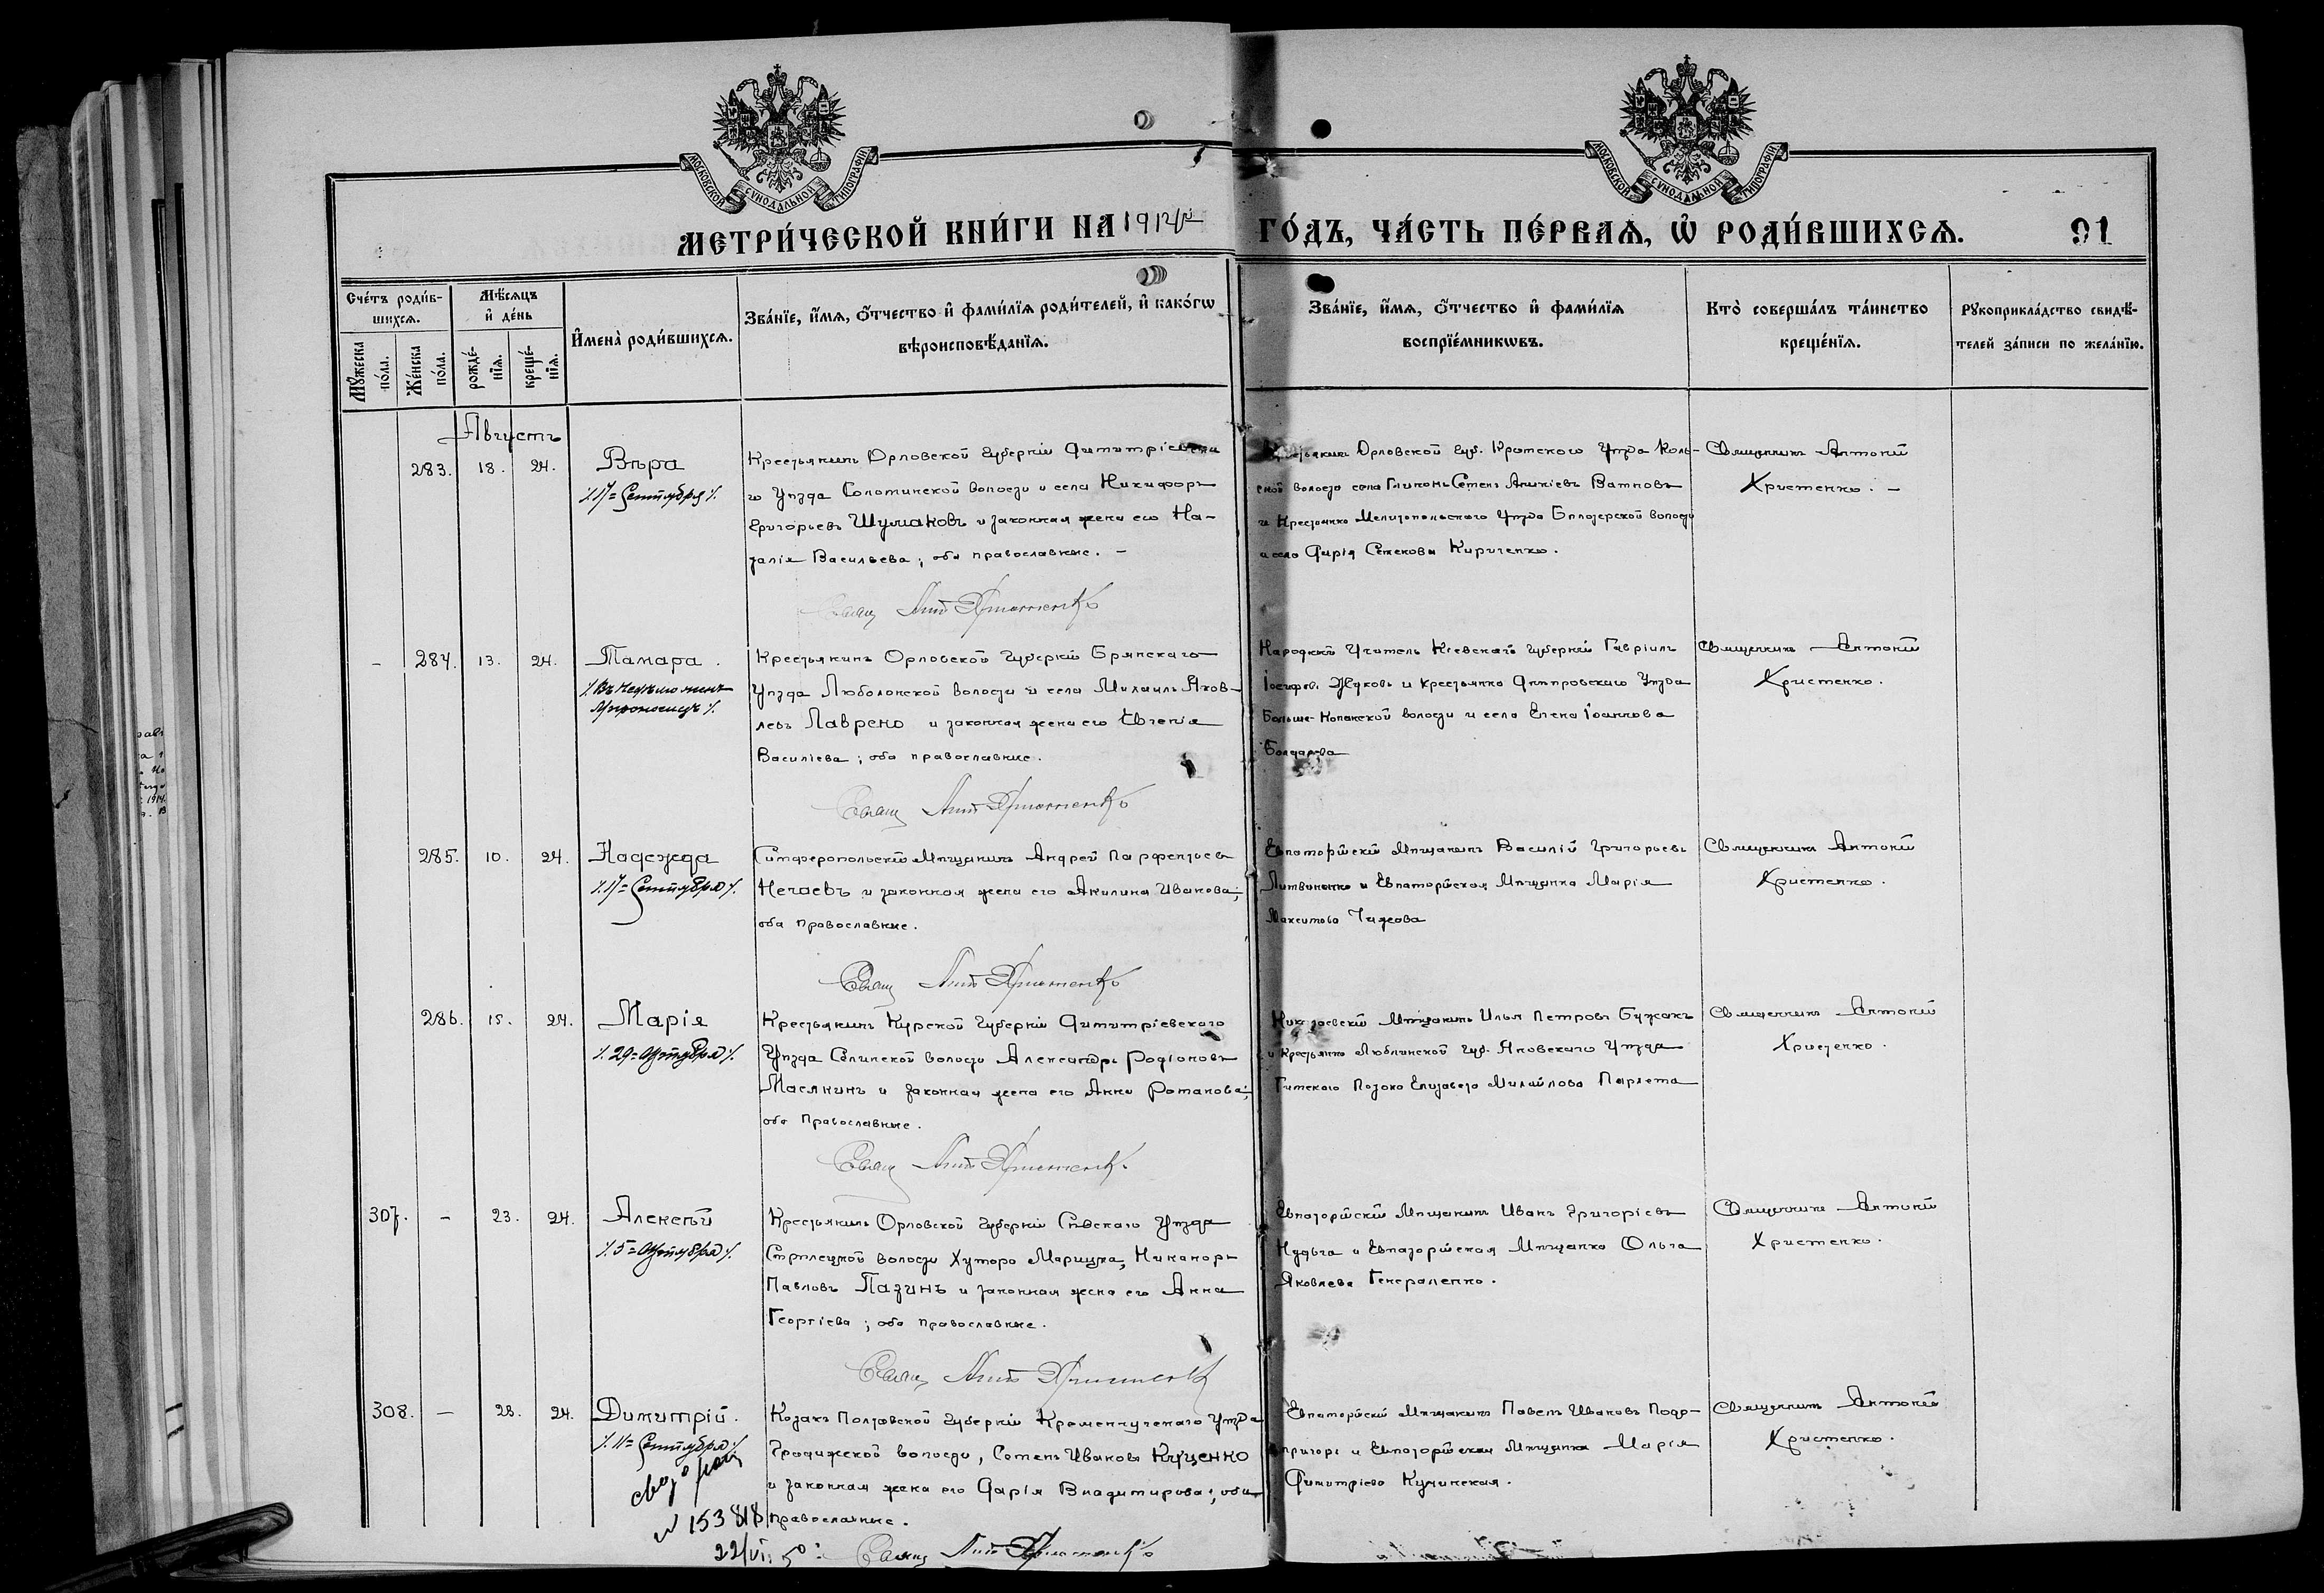 МОСКОВСКОЙ СѴНОДАЛЬНОЙ ТИПОГРАФІИ
МОСКОВСКОЙ СѴНОДАЛЬНОЙ ТИПОГРАФІИ
МЕТРИ́ЧЕСКОЙ КНИ́ГИ НА 1914й ГО́ДЪ, ЧА́СТЬ ПЕ́РВАѦ, Ѡ҆ РОДИ́ВШИХСѦ. 91
Сче́тъ роди́в-
шихсѧ.
Мꙋ́жеска
по́ла.
Же́нска
по́ла.
Мѣ́сѧцъ
и҆ де́нь
рожде́-
нїѧ.
креще́-
нїѧ.
И҆мена̀ роди́вшихсѧ.
Зва́нїе, и҆́мѧ, ѻ҆́тчество и҆ фами́лїѧ роди́телей, и҆ како́гѡ
вѣроисповѣ́данїѧ.
Зва́нїе, и҆́мѧ, ѻ҆́тчество и҆ фами́лїѧ
воспрїе́мникѡвъ.
Кто̀ соверша́лъ та́инство
креще́нїѧ.
Рꙋкоприкла́дство свидѣ́-
телей за́писи по жела́нїю.
Августъ
283. 18. 24. Вѣра
17= Сентября
Крестьянинъ Орловской Губерніи Димитріевска
го Уѣзда Солотинской волости и села Никифоръ
Григорьевъ Шумаковъ и законная жена его На-
талія Васильева; оба православные. –
Свящ Ант Христенко
Орловской Губ. Кромского Уѣзда
волости села Семенъ Ватновъ
и Крестьянка Мелитопольского Уѣзда Бѣлозерской волости
и села Дарія Семенова Кириченко.
Священникъ Антоній
Христенко. –
– 284. 13. 24. Тамара.
Въ недѣлю женъ
Мироносицъ
Крестьянинъ Орловской Губерніи Брянскаго
Уѣзда Любохонской волости и села Михаилъ Яков-
левъ Лаврено и законная жена его Евгенія
Василіева; оба православные.
Свящ Ант Христенко
Народный Учитель Кіевской Губерніи Гавріилъ
Іосифов. Жуковъ и крестьянка Днѣпровскаго Уѣзда
Больше-Копанской волости и села Елена Іоаннова
Священникъ Антоній
Христенко.
285. 10. 24. Надежда
17= Сентября
Симферопольскій Мѣщанинъ Андрей Парфентьевъ
Нечаевъ и законная жена его Акилина Иванова;
оба православные.
Свящ Ант Христенко
Евпаторійскій Мѣщанинъ Василій Григорьевъ
Литвиненко и Евпаторійская Мѣщанка Марія
Максимова Чижова
Священникъ Антоній
Христенко.
286. 15. 24. Марія
29= Октября
Крестьянинъ Курской Губерніи Димитріевскаго
Уѣзда Селинской волости Александръ Родіоновъ
Масякинъ и законная жена его Анна Романова;
оба Православные.
Свящ Ант Христенко
Мѣщанинъ Илья Петровъ Бужакъ
и Крестьянка Люблинской Губ. Яновскаго Уѣзда
Елизавета Михайлова
Священникъ Антоній
Христенко.
307. – 23. 24. Алексѣй
5= Октября
Крестьянинъ Орловской Губерніи Сѣвскаго Уѣзда
Стрѣлецкой волости Хутора Марицка, Никаноръ
Павловъ Пазинъ и законная жена его Анна
Георгіева; оба православные.
Свящ Ант Христенко
Евпаторійскій Мѣщанинъ Иванъ Григоріевъ
Нудьга и Евпаторійская Мѣщанка Ольга
Яковлева Генераленко.
Священникъ Антоній
Христенко.
308. – 23. 24. Димитрій.
11= Сентября
№ 153818
22/VI 50
Козакъ Полтавской Губерніи Кременчугскаго Уѣзда
Градижской волости, Семенъ Ивановъ Куценко
и законная жена его Дарія Владимирова; оба
православные.
Свящ Ант Христенко
Евпаторійскій Мѣщанинъ Павелъ Ивановъ Подо-
пригора и Евпаторійская Мѣщанка Марія
Димитріева Кучинская.
Священникъ Антоній
Христенко.